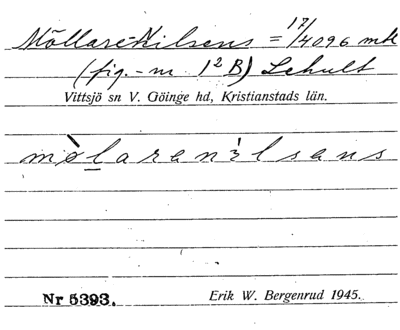 Möllare-Nilsens = 17/4096 mtl
(fig.-nr 1² B) Lehult
Vittsjö sn V. Göinge hd, Kristianstads län.
mòlaranilsans
Nr 5393.
Erik W. Bergenrud 1945.